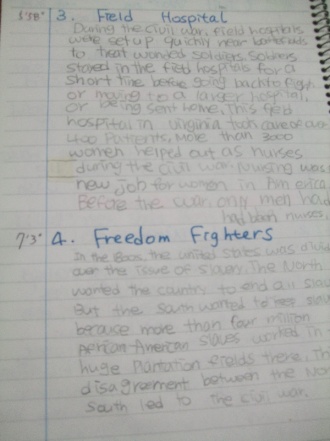 5'38" 3. Field Hospital
During the Civil War, field hospitals
were set up quickly near
to treat wonded soldiers. Soldiers
stayed in the field hospitals for a
short time before going back to fight
or moving to a larger hospital,
or being sent home. This field
hospital in Virginia took care of
400 Patients. More than 3000
women helped out as nurses
during the civil war. Nursing was
new job for women in
Before the war, only men had
had been nurses.
7'3" 4. Freedom Fighters
In the the united states was
over the issue of slavery. The North
wanted the country to end all
But the South wanted to
because more than four million
African-American slaves worked in
huge Plantation fields there. Th
disagreement between the
South led to the civil war.